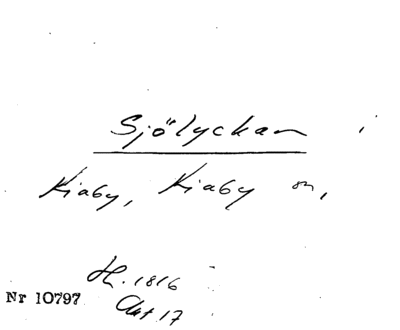 Sjölyckan i
Kiaby, Kiaby sn,
H. 1816
Nr 10797
Akt 17